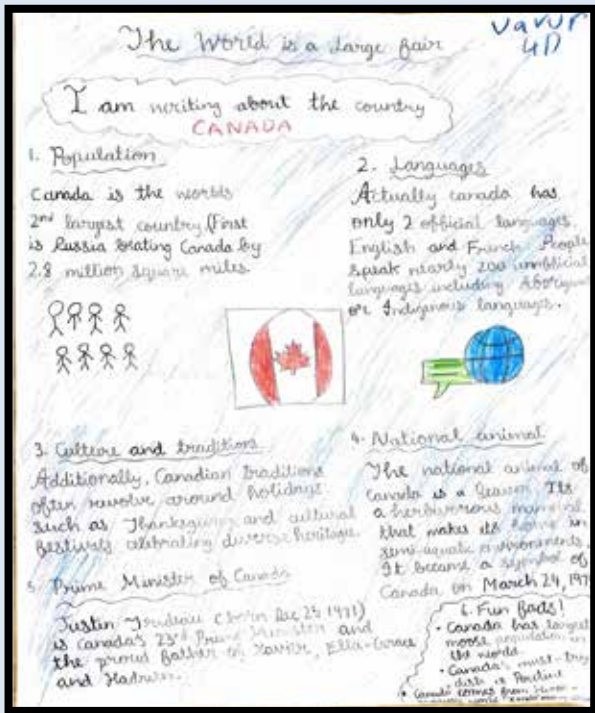 The World is a large fair
Vavur
4D
I am writing about the country
CANADA
1. Population
Canada is the worlds
2nd largest country (First
is Russia beating Canada by
2.8 million square miles.
2. Languages
Actually canada has
only 2 official languages,
English and French. People
speak nearly 200 unofficial
languages including
or Indigenous languages.
3. Culture and traditions
Additionally, Canadian traditions
often revolve around holidays
such as Thanksgiving and cultural
festivals celebrating diverse heritage.
4. National animal
The national animal of
Canada is a Beaver. Its
a herbivorous mammal
that makes its home in
semi-aquatic environments.
It became a symbol of
Canada on March 24, 197
5. Prime Minister of Canada
Justin Trudeau (born Dec 25 1971)
is Canada's 23rd Prime Minister and
the proud father of Xavier, Ella-Grace
and Hadrien.
6. Fun facts!
• Canada has largest
moose population in
the world.
• Canada's must-try
dish is Poutine
• Canada comes from